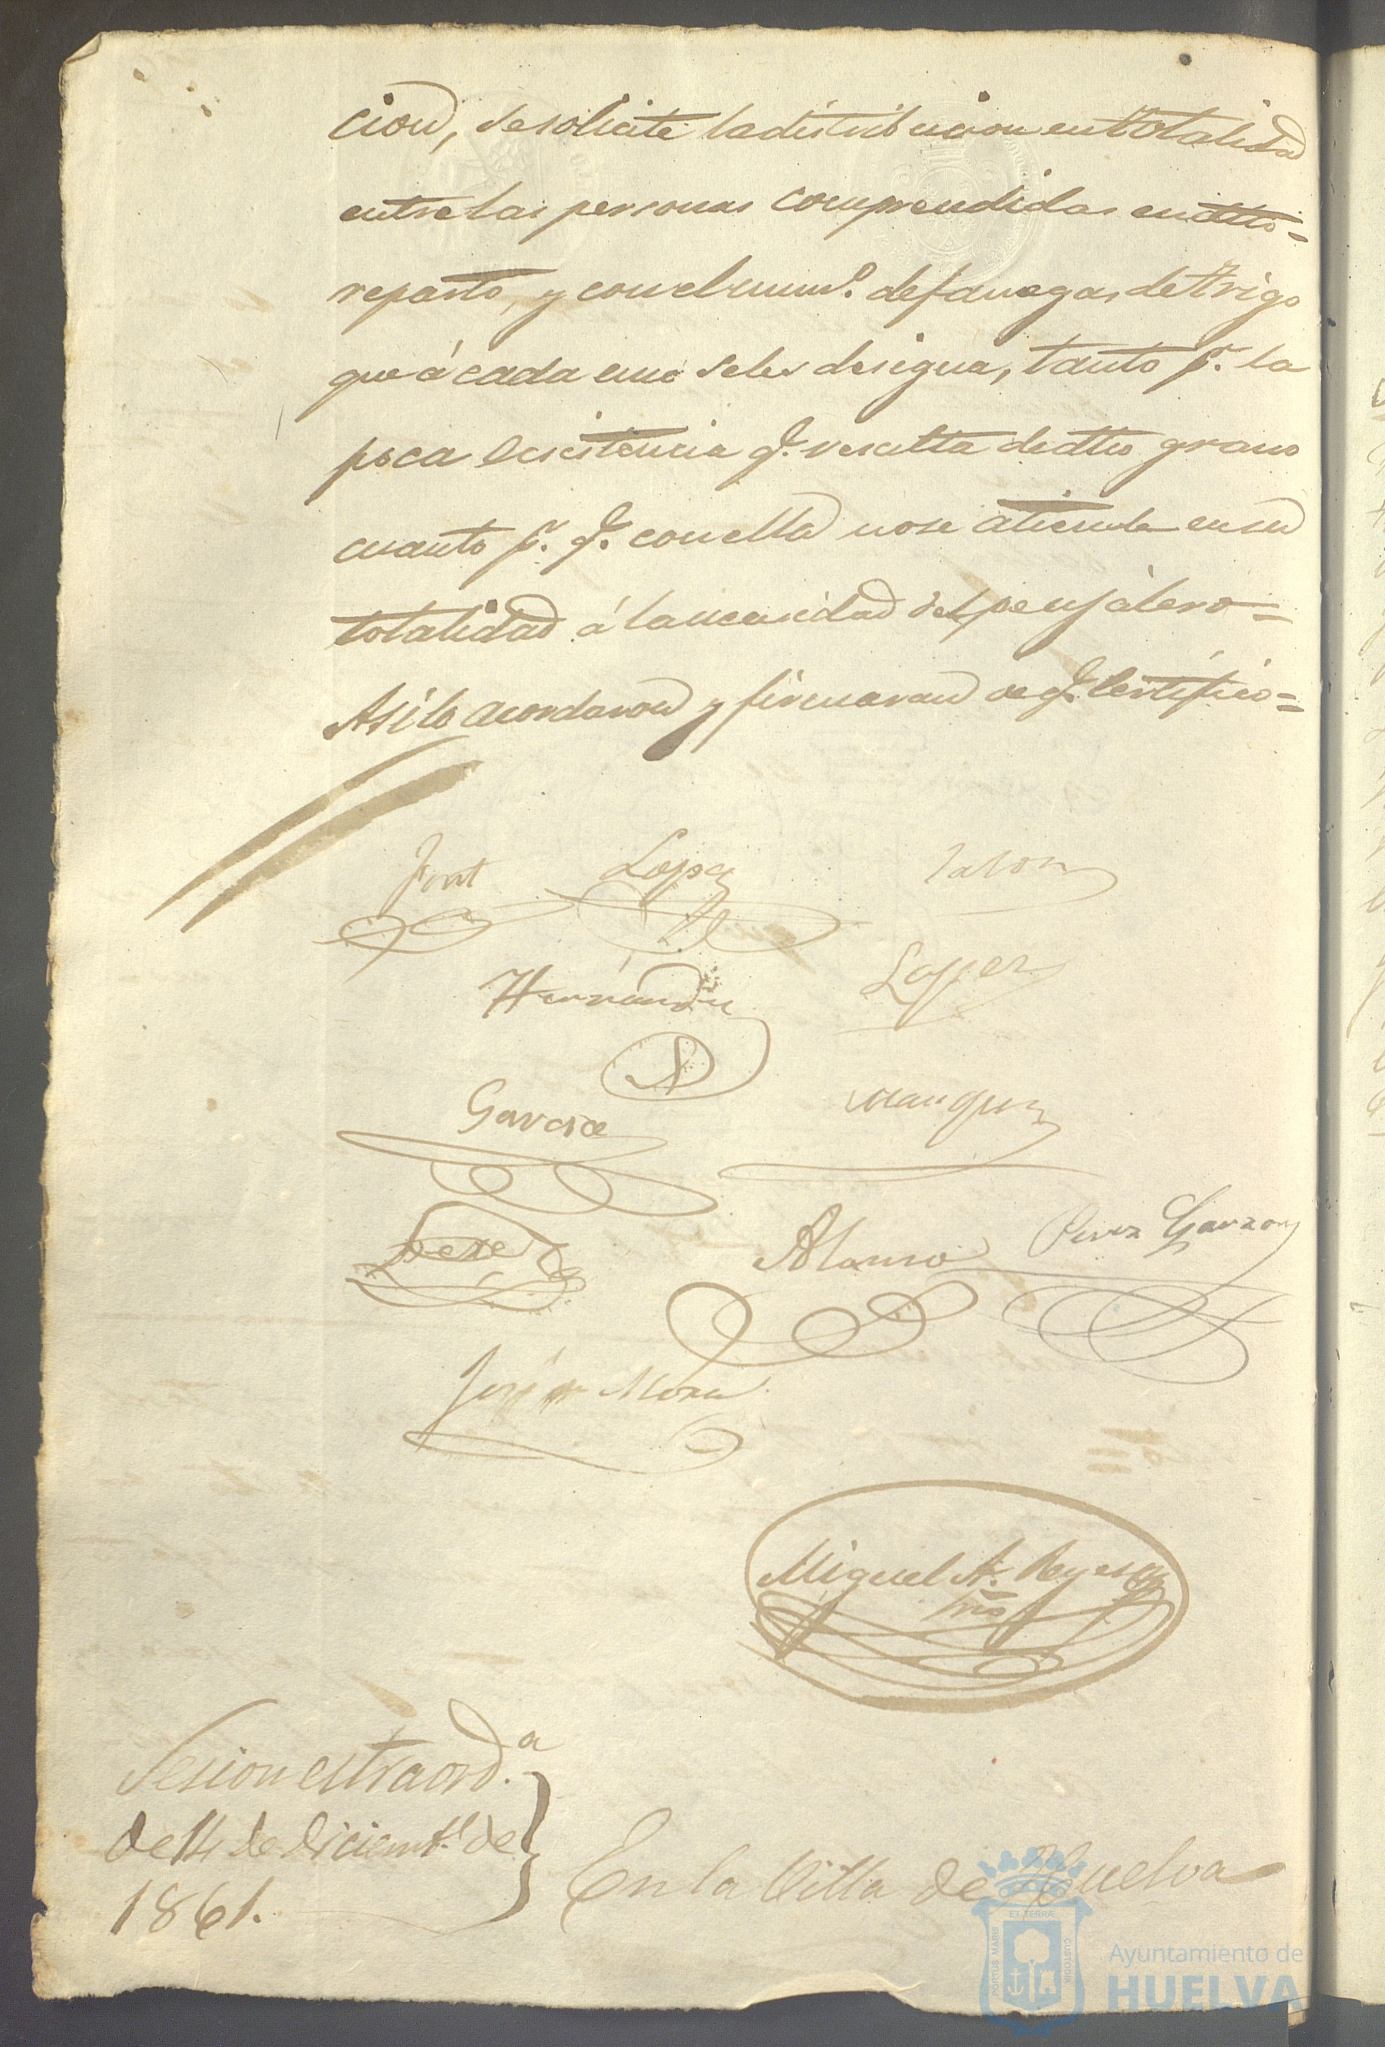 cion, se solicite la distribucion en totalidad
entre las personas comprendidas en dho
reparto, y con el numº. de fanegas de trigo
que á cada uno se les designa, tanto pr. la
poca ecsistencia q. resulta de dho grano
cuanto pr. q. con ella no se atiende en su
totalidad á la necesidad del pegujalero=
Asi lo acordaron y firmaran de q. Certifico=
Font Lopez
Hernandez Lopez
Garcia
Alonso Perez Garzon
Mora
Miguel A. Reyes
Srio
Sesion estraord.a
de 14 de Diciembe. de
1861.
En la Villa de Huelva
PORTUS MARIS ET TERRÆ CUSTODIA
Ayuntamiento de
HUELVA